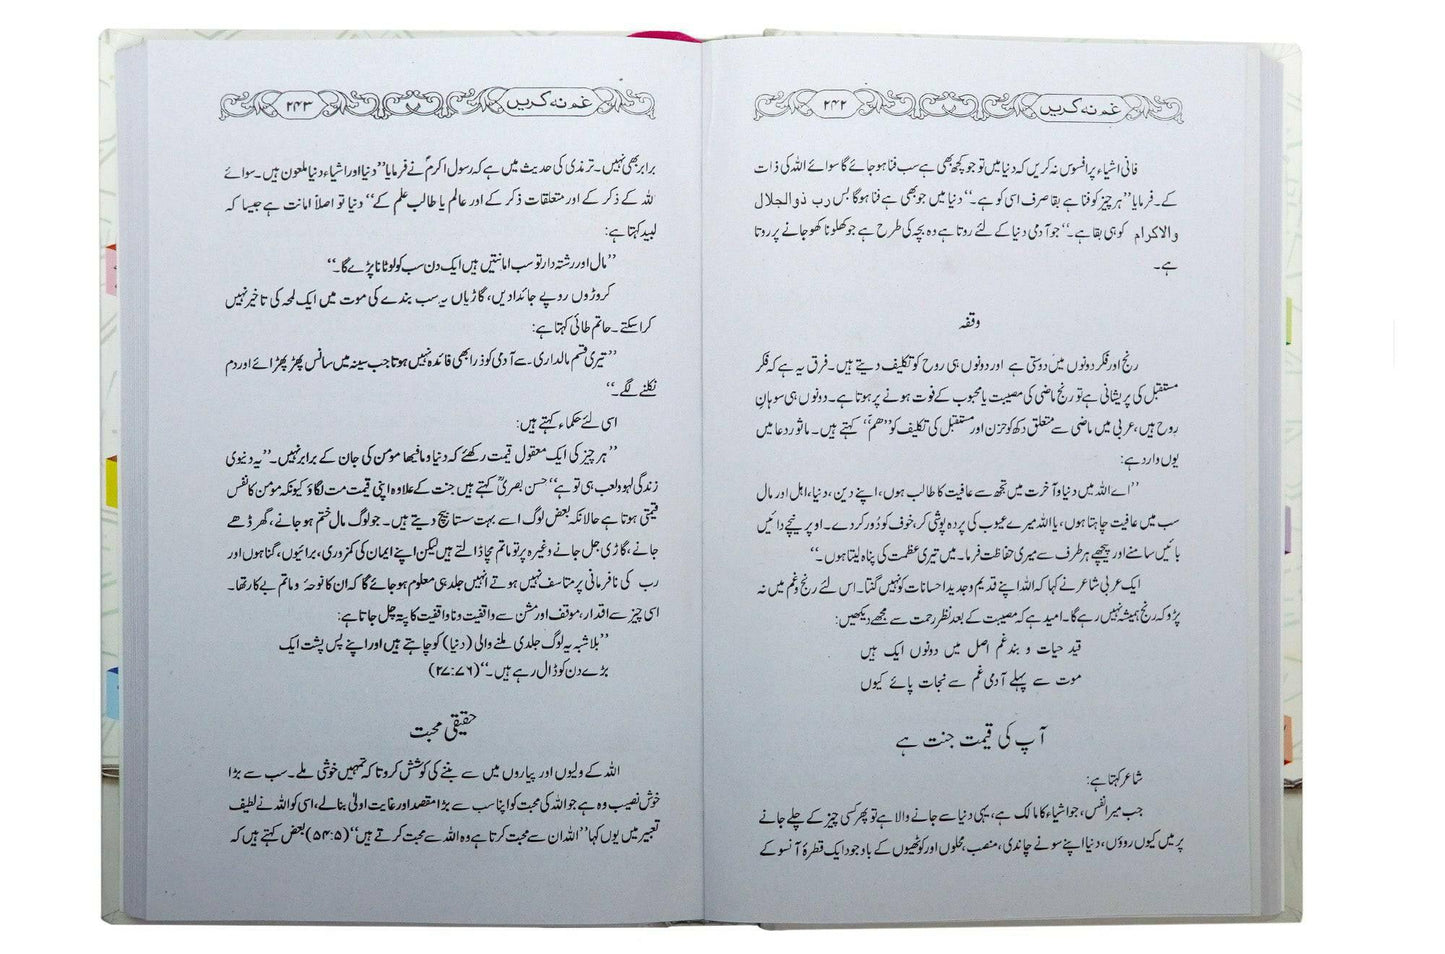 غم نہ کریں ۲۴۲
فانی اشیاء پر افسوس نہ کریں کہ دنیا میں تو جو کچھ بھی ہے سب فنا ہو جائے گا سوائے اللہ کی ذات
کے۔ فرمایا ’’ہر چیز کو فنا ہے بقا صرف اسی کو ہے۔‘‘ دنیا میں جو بھی ہے فنا ہوگا بس رب ذوالجلال
والاکرام کو ہی بقا ہے۔‘‘ جو آدمی دنیا کے لئے روتا ہے وہ بچہ کی طرح ہے جو کھلونا کھو جانے پر روتا
ہے۔
وقفہ
رنج اور فکر دونوں میں دوستی ہے اور دونوں ہی روح کو تکلیف دیتے ہیں۔ فرق یہ ہے کہ فکر
مستقبل کی پریشانی ہے تو رنج ماضی کی مصیبت یا محبوب کے فوت ہونے پر ہوتا ہے۔ دونوں ہی سوہانِ
روح ہیں، عربی میں ماضی سے متعلق دکھ کو حزن اور مستقبل کی تکلیف کو ’’ھم‘‘ کہتے ہیں۔ ماثور دعا میں
یوں وارد ہے:
’’اے اللہ میں دنیا و آخرت میں تجھ سے عافیت کا طالب ہوں، اپنے دین، دنیا، اہل اور مال
سب میں عافیت چاہتا ہوں، یا اللہ میرے عیوب کی پردہ پوشی کر، خوف کو دُور کر دے۔ اوپر نیچے دائیں
بائیں سامنے اور پیچھے ہر طرف سے میری حفاظت فرما۔ میں تیری عظمت کی پناہ لیتا ہوں۔‘‘
ایک عربی شاعر نے کہا کہ اللہ اپنے قدیم و جدید احسانات کو نہیں گنتا۔ اس لئے رنج و غم میں نہ
پڑو کہ رنج ہمیشہ نہیں رہے گا۔ امید ہے کہ مصیبت کے بعد نظر رحمت سے مجھے دیکھیں:
قید حیات و بند غم اصل میں دونوں ایک ہیں
موت سے پہلے آدمی غم سے نجات پائے کیوں
آپ کی قیمت جنت ہے
شاعر کہتا ہے:
جب میرا نفس، جو اشیاء کا مالک ہے، یہی دنیا سے جانے والا ہے تو پھر کسی چیز کے چلے جانے
پر میں کیوں روؤں، دنیا اپنے سونے چاندی، منصب، محلوں اور کوٹھیوں کے باوجود ایک قطرۂ آنسو کے
غم نہ کریں ۲۴۳
برابر بھی نہیں۔ ترمذی کی حدیث میں ہے کہ رسول اکرمؐ نے فرمایا ’’دنیا اور اشیاء دنیا ملعون ہیں۔ سوائے
للہ کے ذکر کے اور متعلقات ذکر کے اور عالم یا طالب علم کے‘‘ دنیا تو اصلاً امانت ہے جیسا کہ
لبید کہتا ہے:
’’مال اور رشتہ دار تو سب امانتیں ہیں ایک دن سب کو لوٹانا پڑے گا۔‘‘
کروڑوں روپے جائدادیں، گاڑیاں یہ سب بندے کی موت میں ایک لمحہ کی تاخیر نہیں
کرا سکتے۔ حاتم طائی کہتا ہے:
’’تیری قسم مالداری سے آدمی کو ذرا بھی فائدہ نہیں ہوتا جب سینہ میں سانس پھڑپھڑائے اور دم
نکلنے لگے۔‘‘
اسی لئے حکماء کہتے ہیں:
’’ہر چیز کی ایک معقول قیمت رکھئے کہ دنیا و مافیھا مؤمن کی جان کے برابر نہیں۔‘‘ یہ دنیوی
زندگی لہو و لعب ہی تو ہے‘‘ حسن بصریؒ کہتے ہیں جنت کے علاوہ اپنی قیمت مت لگاؤ کیونکہ مؤمن کا نفس
قیمتی ہوتا ہے حالانکہ بعض لوگ اسے بہت سستا بیچ دیتے ہیں۔ جو لوگ مال ختم ہو جانے، گھر ڈھے
جانے، گاڑی جل جانے وغیرہ پر تو ماتم مچا ڈالتے ہیں لیکن اپنے ایمان کی کمزوری، برائیوں، گناہوں اور
رب کی نافرمانی پر متاسف نہیں ہوتے انہیں جلد ہی معلوم ہو جائے گا کہ ان کا نوحہ و ماتم بے کار تھا۔
اسی چیز سے اقدار، موقف اور مشن سے واقفیت و ناواقفیت کا پتہ چل جاتا ہے:
’’بلاشبہ یہ لوگ جلدی ملنے والی (دنیا) کو چاہتے ہیں اور اپنے پس پشت ایک
بڑے دن کو ڈال رہے ہیں۔‘‘ (۷۶:۲۷)
حقیقی محبت
اللہ کے ولیوں اور پیاروں میں سے بننے کی کوشش کرو تا کہ تمہیں خوشی ملے۔ سب سے بڑا
خوش نصیب وہ ہے جو اللہ کی محبت کو اپنا سب سے بڑا مقصد اور غایت اولیٰ بنا لے، اسی کو اللہ نے لطیف
تعبیر میں یوں کہا ’’اللہ ان سے محبت کرتا ہے وہ اللہ سے محبت کرتے ہیں‘‘ (۵:۵۴) بعض کہتے ہیں کہ